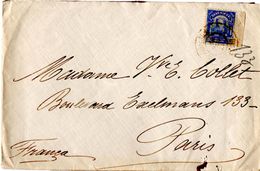 Madame Vve E. Collet
Boulevard Exelmans 133-
Paris
França